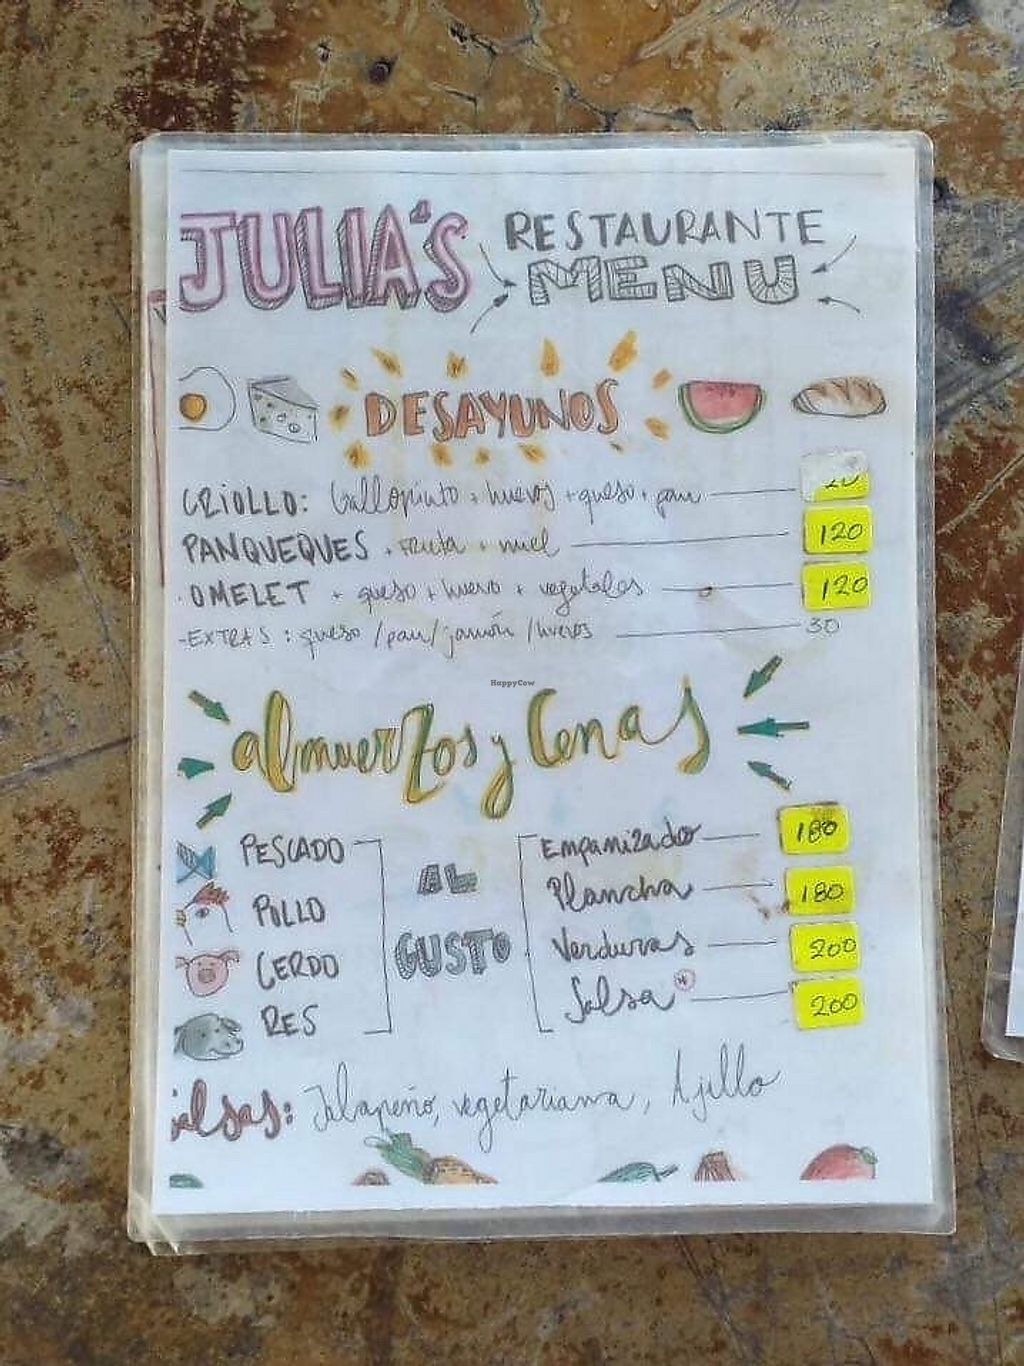 JULIA'S RESTAURANTE
MENU
DESAYUNOS
CRIOLLO: Gallopinto + huevos + queso + pan
PANQUEQUES + Fruta + miel 120
OMELET + queso + huevo + vegetales 120
-EXTRAS: queso /pan/ jamón /huevos 30
HappyCow
almuerzos y Cenas
PESCADO
POLLO
CERDO
RES
AL
GUSTO
Empanizado 180
Plancha 180
Verduras 200
Salsa * 200
alsas: Jalapeño, vegetariana, Ajillo